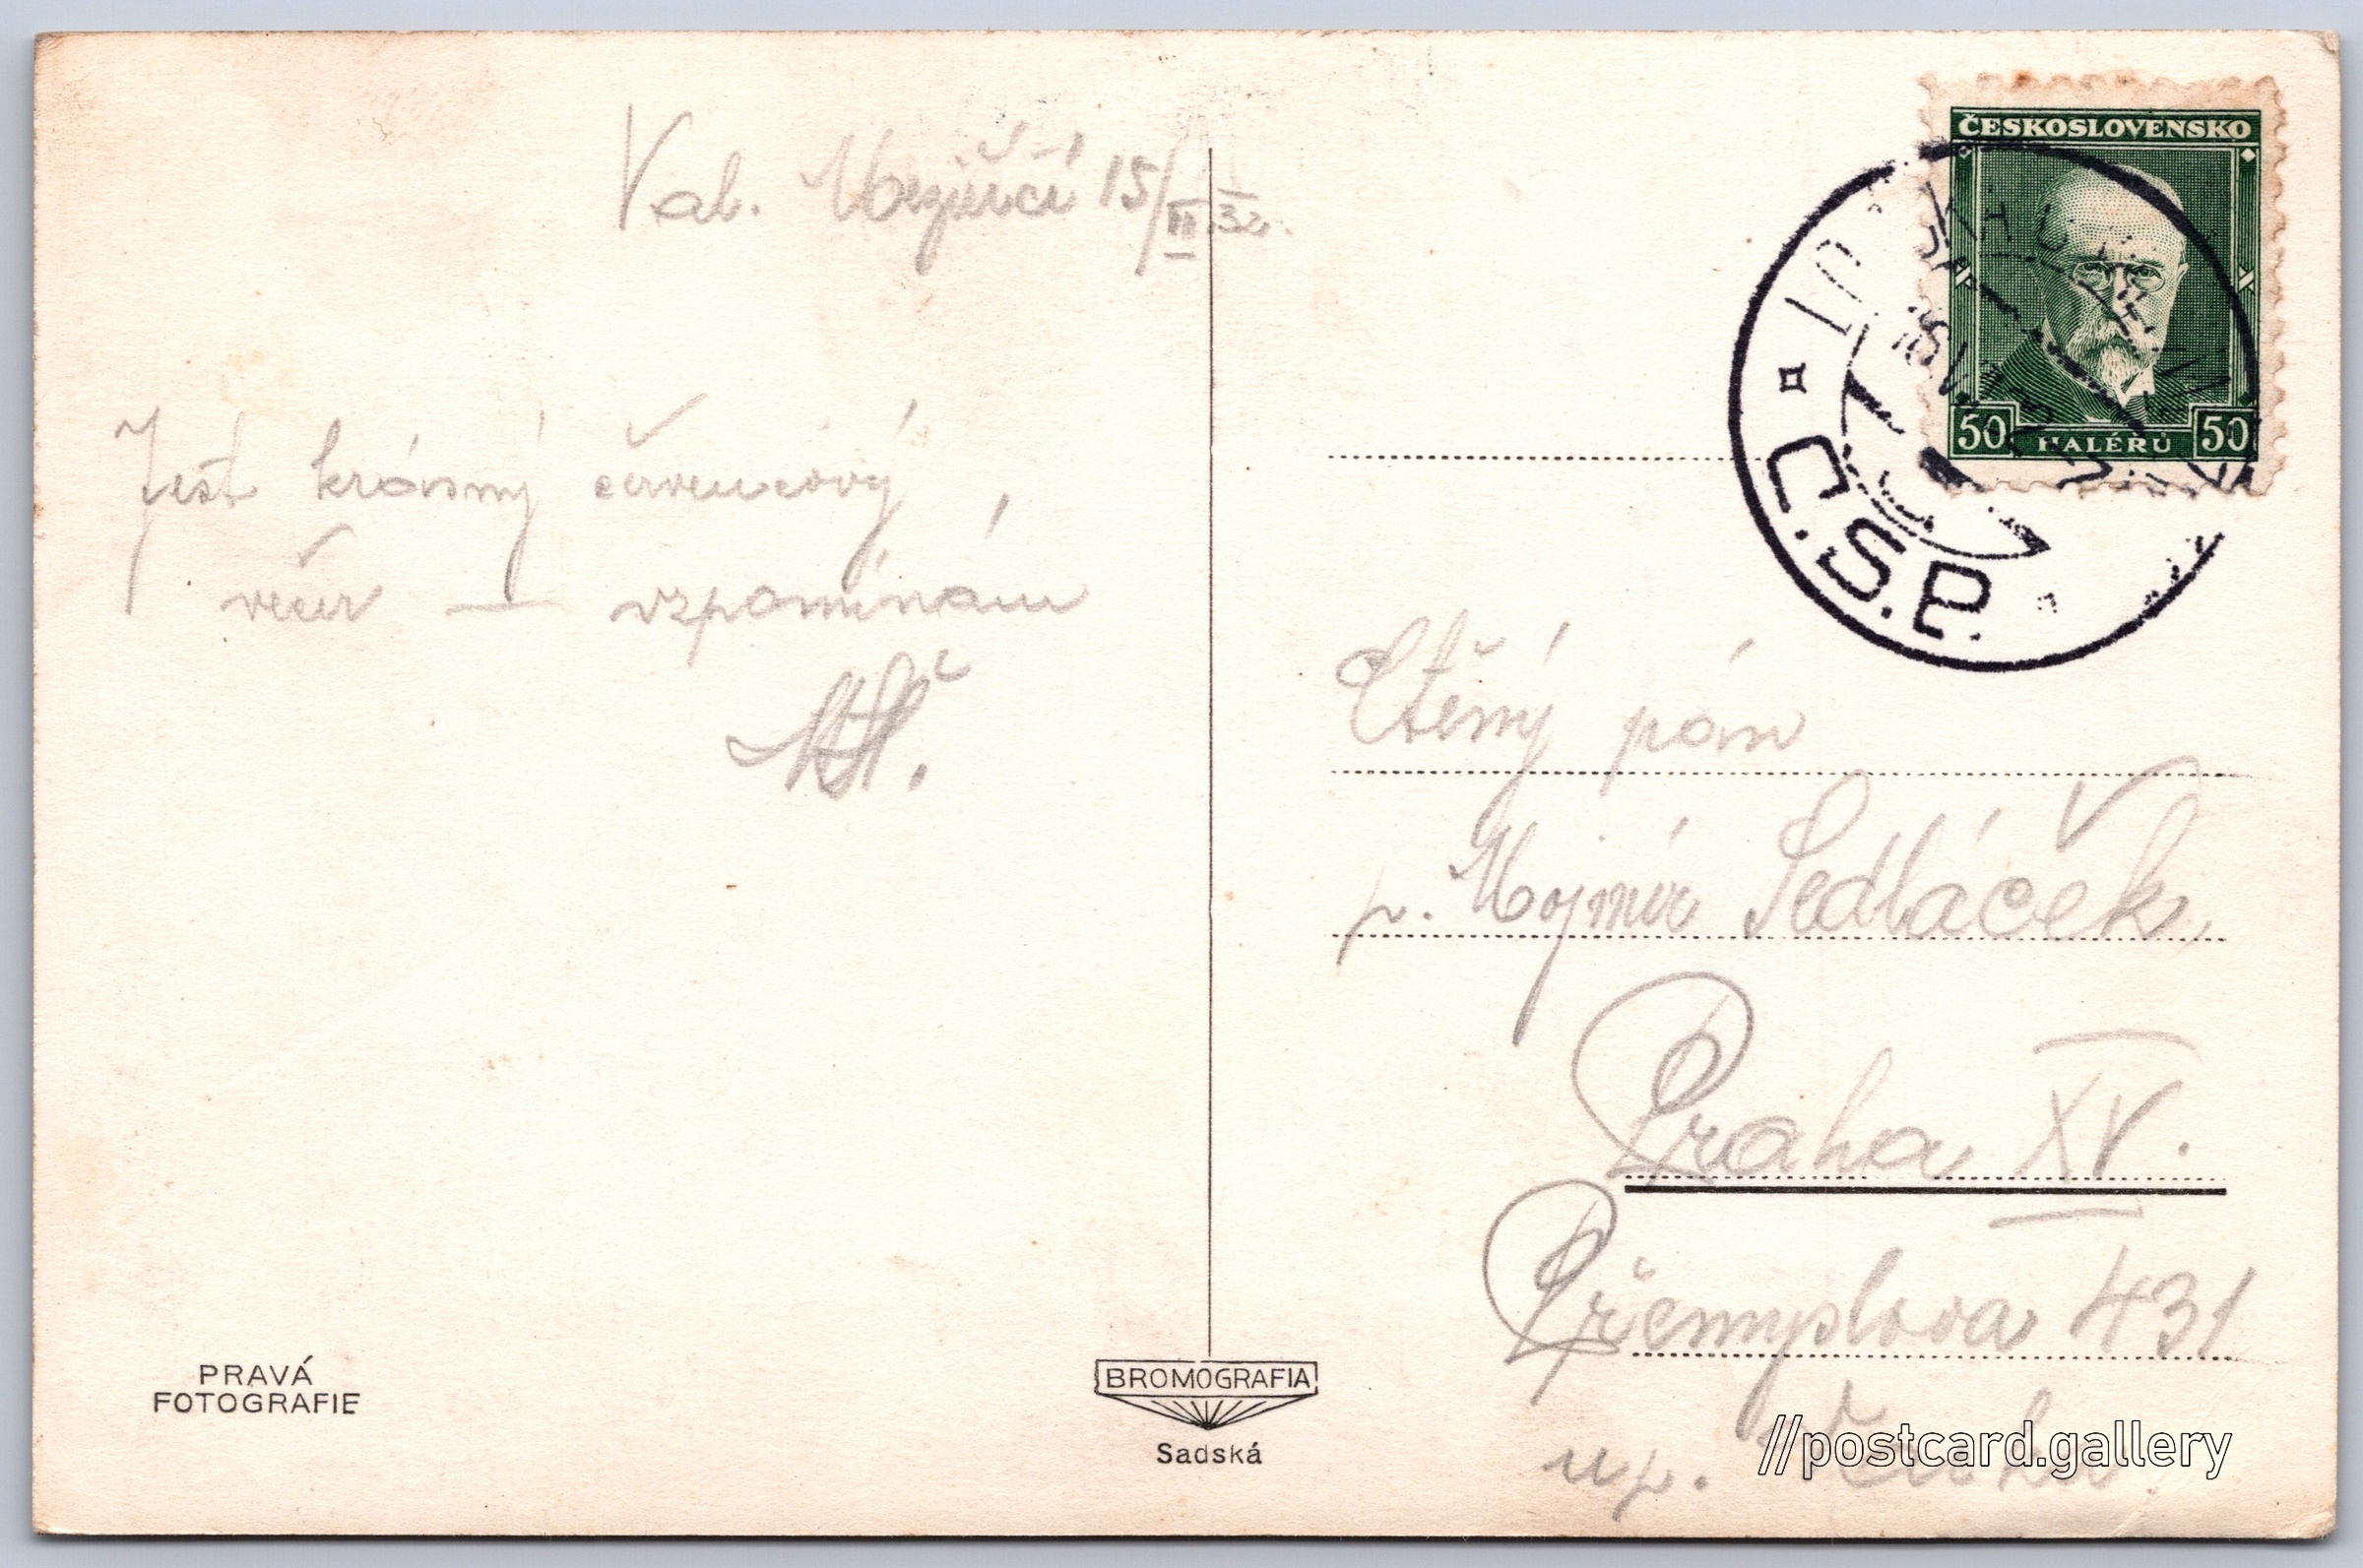 Val. Meziříčí 15/VII 32.
Jest krásný červencový
večer — vzpomínám
ČESKOSLOVENSKO
50 HALÉŘŮ 50
C.S.P.
Ctěný pán
p. Mojmír Sedláček
Praha XV.
Přemyslova 431
up.
PRAVÁ
FOTOGRAFIE
BROMOGRAFIA
Sadská
//postcard.gallery